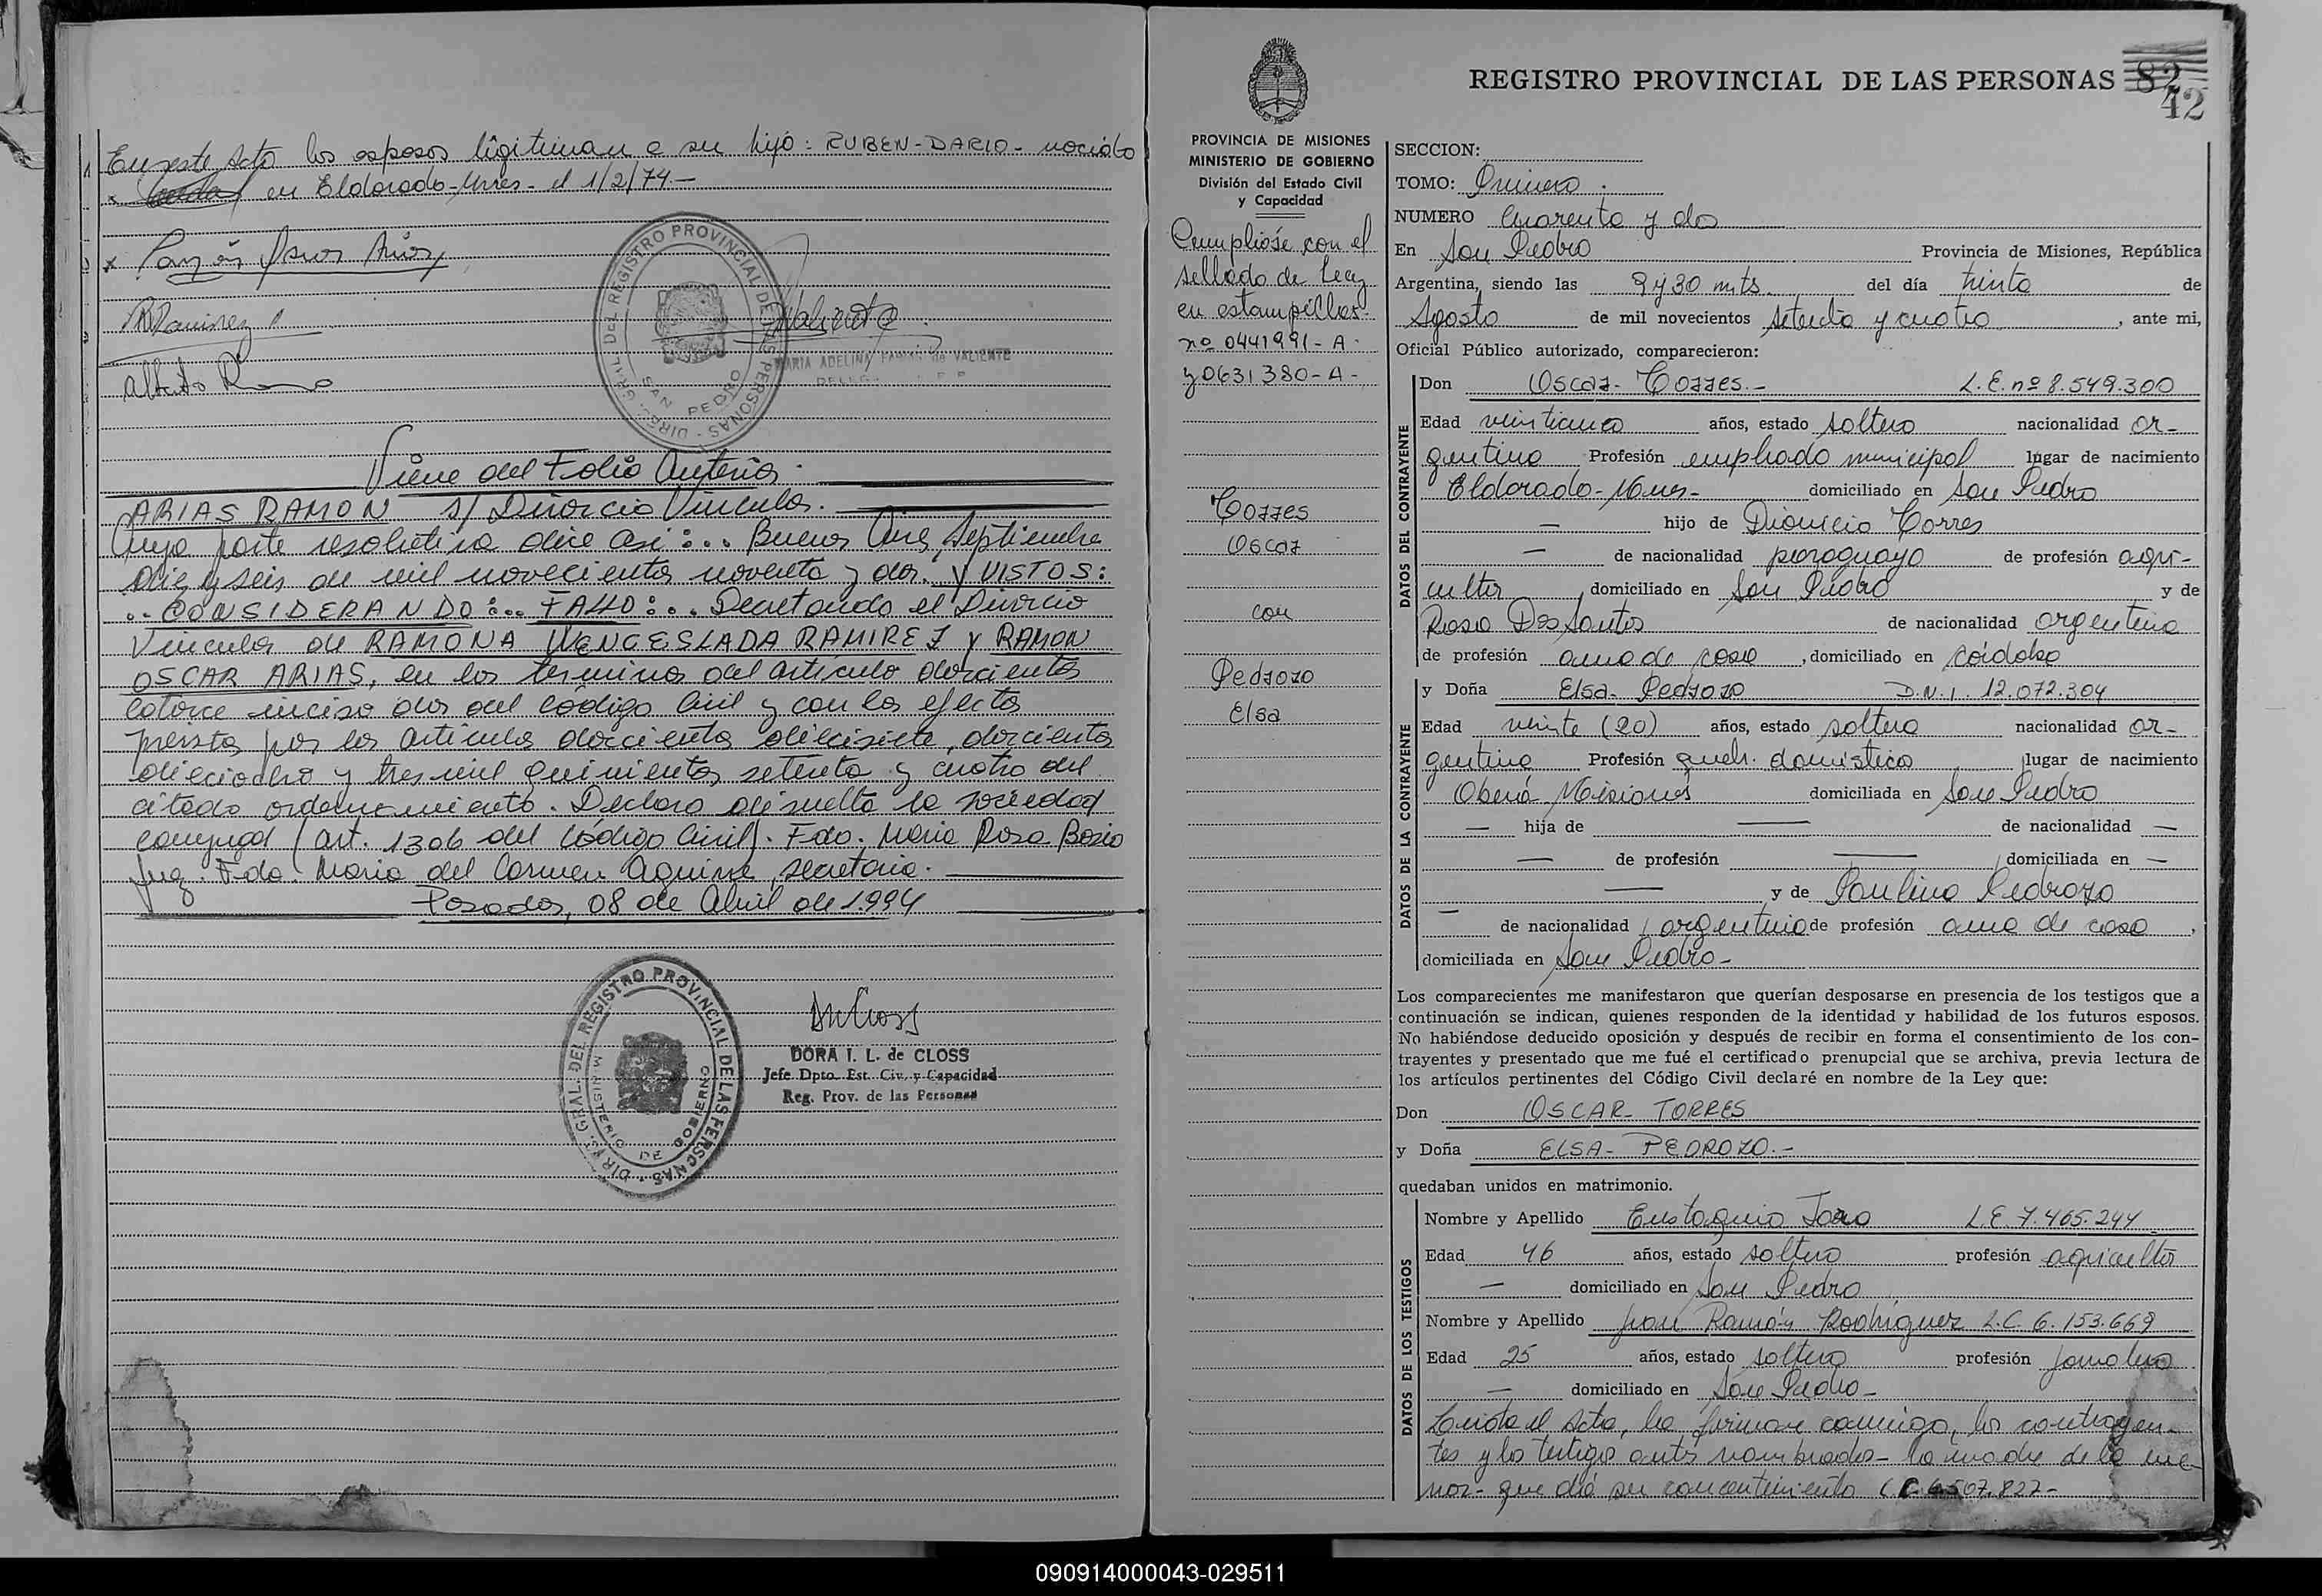 En este Acto los esposos ligitiman a su hijo: RUBEN-DARIO- nacido
en Eldorado-Mnes- el 1/2/74.-
x
RRamirez
Alberto
DIREC. GRAL. DEL REGISTRO PROVINCIAL DE LAS PERSONAS
SAN PEDRO
MARIA ADELINA de VALIENTE
Viene del Folio Anterior.
ARIAS RAMON s/ Divorcio Vincular.
Cuya parte resolutiva dice así:... Buenos Aires, Septiembre
dieciseis de mil novecientos noventa y dos. y VISTOS:
... CONSIDERANDO:... FALLO:... Decretando el Divorcio
Vincular de RAMONA WENCESLADA RAMIREZ y RAMON
OSCAR ARIAS, en los terminos del artículo doscientos
catorce inciso dos del código Civil y con los efectos
previstos por los artículos doscientos diecisiete, doscientos
dieciocho y tres mil quinientos setenta y cuatro del
citado ordenamiento. Declaro disuelta la sociedad
conyugal (art. 1306 del Código Civil). Fdo. Maria Rosa Bosio
Juez. Fdo. Maria del Carmen Aguirre, secretaria.
Posadas, 08 de Abril de 1.994
DIR. GRAL. DEL REGISTRO PROVINCIAL DE LAS PERSONAS
MINISTERIO DE GOBIERNO
DORA I. L. de CLOSS
Jefe Dpto. Est. Civ. y Capacidad
Reg. Prov. de las Personas
REGISTRO PROVINCIAL DE LAS PERSONAS 82
42
PROVINCIA DE MISIONES
MINISTERIO DE GOBIERNO
División del Estado Civil
y Capacidad
Cumplióse con el
sellado de Ley
en estampillas
nº 0441991-A-
y 0631380-A-
Torres
Oscar
con
Pedrozo
Elsa
SECCION:
TOMO: Primero.
NUMERO Cuarenta y dos
En San Pedro Provincia de Misiones, República
Argentina, siendo las 9 y 30 mts. del día treinta de
Agosto de mil novecientos setenta y cuatro, ante mi,
Oficial Público autorizado, comparecieron:
DATOS DEL CONTRAYENTE
Don Oscar- Torres.- L.E. nº 8.549.300
Edad veinticinco años, estado soltero nacionalidad ar-
gentino Profesión empleado municipal lugar de nacimiento
Eldorado-Mnes- domiciliado en San Pedro
— hijo de Dionicio Torres
— de nacionalidad paraguayo de profesión agri-
cultor, domiciliado en San Pedro y de
Rosa Dos Santos de nacionalidad argentina
de profesión ama de casa, domiciliado en córdoba
DATOS DE LA CONTRAYENTE
y Doña Elsa- Pedrozo D.N.I. 12.072.304
Edad veinte (20) años, estado soltera nacionalidad ar-
gentina Profesión queh. doméstico lugar de nacimiento
Oberá Misiones domiciliada en San Pedro
— hija de — de nacionalidad —
— de profesión — domiciliada en —
— y de Paulina Pedrozo
— de nacionalidad argentina de profesión ama de casa,
domiciliada en San Pedro-
Los comparecientes me manifestaron que querían desposarse en presencia de los testigos que a
continuación se indican, quienes responden de la identidad y habilidad de los futuros esposos.
No habiéndose deducido oposición y después de recibir en forma el consentimiento de los con-
trayentes y presentado que me fué el certificado prenupcial que se archiva, previa lectura de
los artículos pertinentes del Código Civil declaré en nombre de la Ley que:
Don OSCAR- TORRES
y Doña ELSA- PEDROZO.-
quedaban unidos en matrimonio.
DATOS DE LOS TESTIGOS
Nombre y Apellido Eustaquio Jara L.E. 7.465.244
Edad 46 años, estado soltero profesión agricultor
— domiciliado en San Pedro
Nombre y Apellido Juan Ramón Rodriguez L.C. 6.153.669
Edad 25 años, estado soltero profesión Jornalero
— domiciliado en San Pedro-
el Acta, la firman conmigo, los contrayen-
tes y los testigos antes nombrados- la madre de la me-
nor- que dá su concentimiento 6507.822-
090914000043-029511